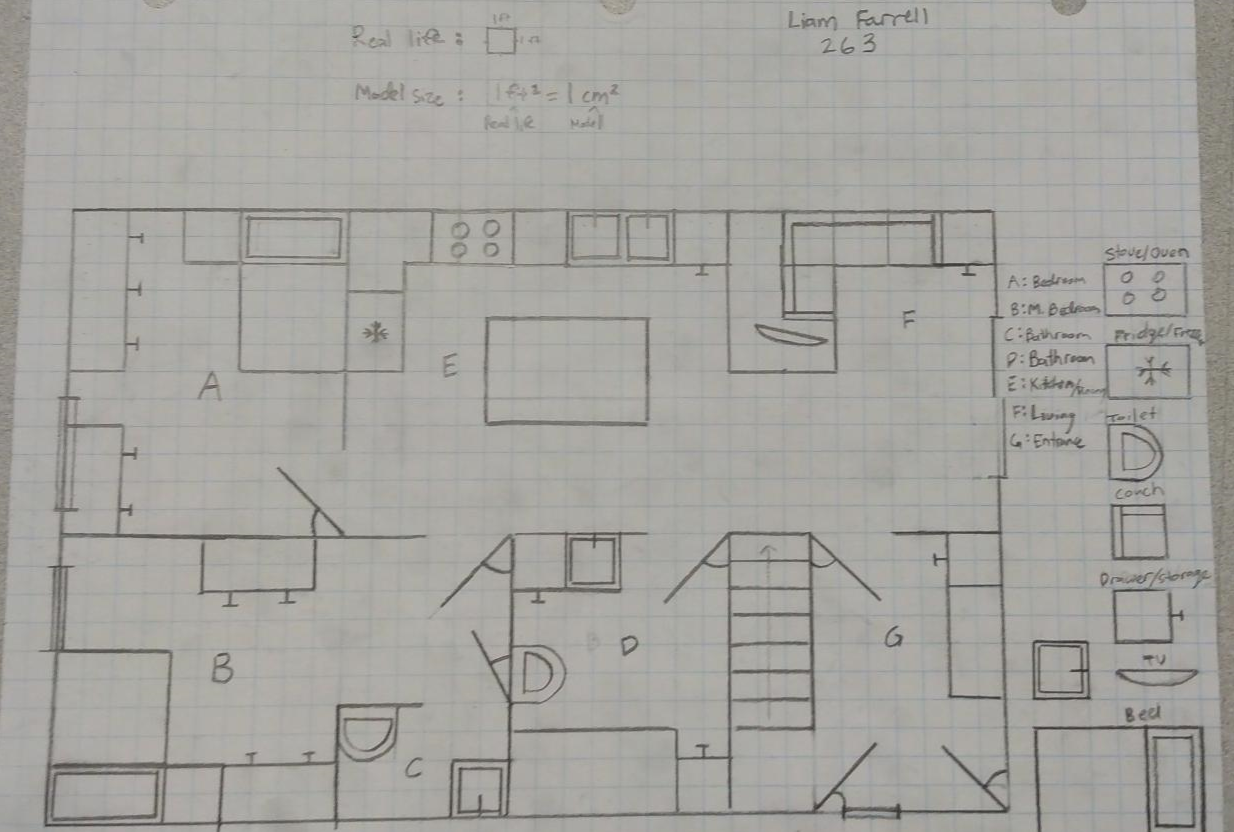 Liam Farrell
263
Real life : 1ft 1ft
Model size : 1 ft² = 1 cm²
Real life Model
A
E
F
B
C
D
G
A: Bedroom
B: M. Bedroom
C: Bathroom
D: Bathroom
E: Kitchen/
F: Living
G: Entrance
Stove/Oven
Fridge/Freeze
Toilet
Couch
Drawer/storage
TV
Bed